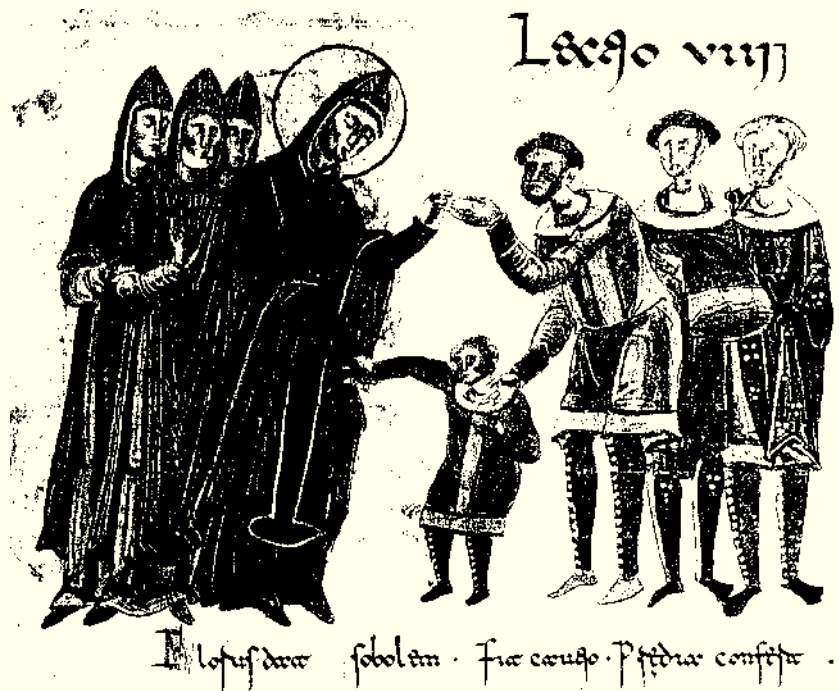 Lectio viiij
Florus dat sobolem . fit cautio . Prędia confert .